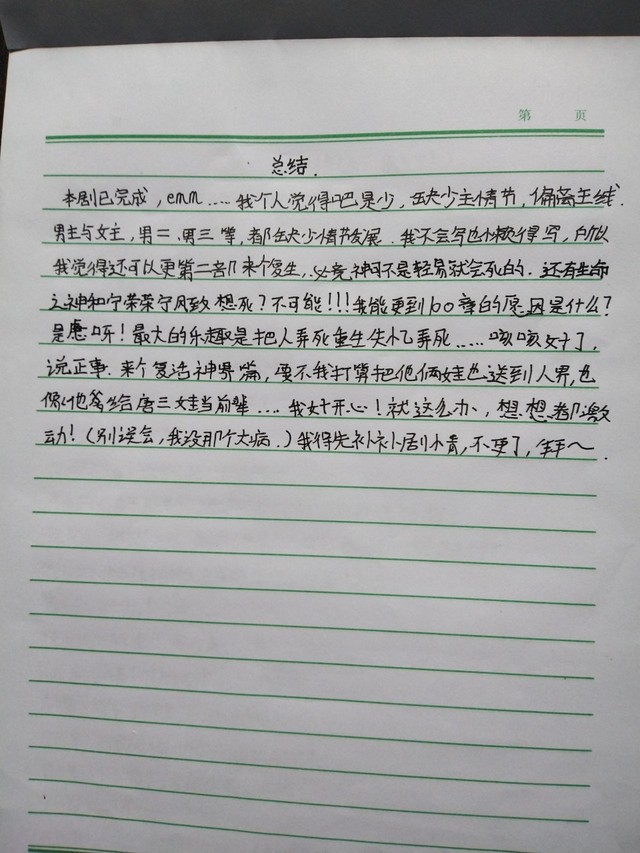 第 页
总结.
本剧已完成，emm……我个人觉得吧是少，缺少主情节，偏离主线.
男主与女主，男二、男三等，都缺少情节发展.我不会写也懒得写，所以
我觉得还可以更第二部来个复生，必竟神可不是轻易就会死的.还有生命
之神和宁荣荣宁风致想死？不可能！！！我能更到100章的原因是什么？
是虐呀！最大的乐趣是把人弄死重生失忆弄死……咳咳好了，
说正事.来个复活神界篇，要不我打算把他俩娃也送到人界，也
像他爸给唐三娃当前辈….我好开心！就这么办，想想都激
动！（别误会，我没那个大病.）我得先补补剧情，不更了，拜～.